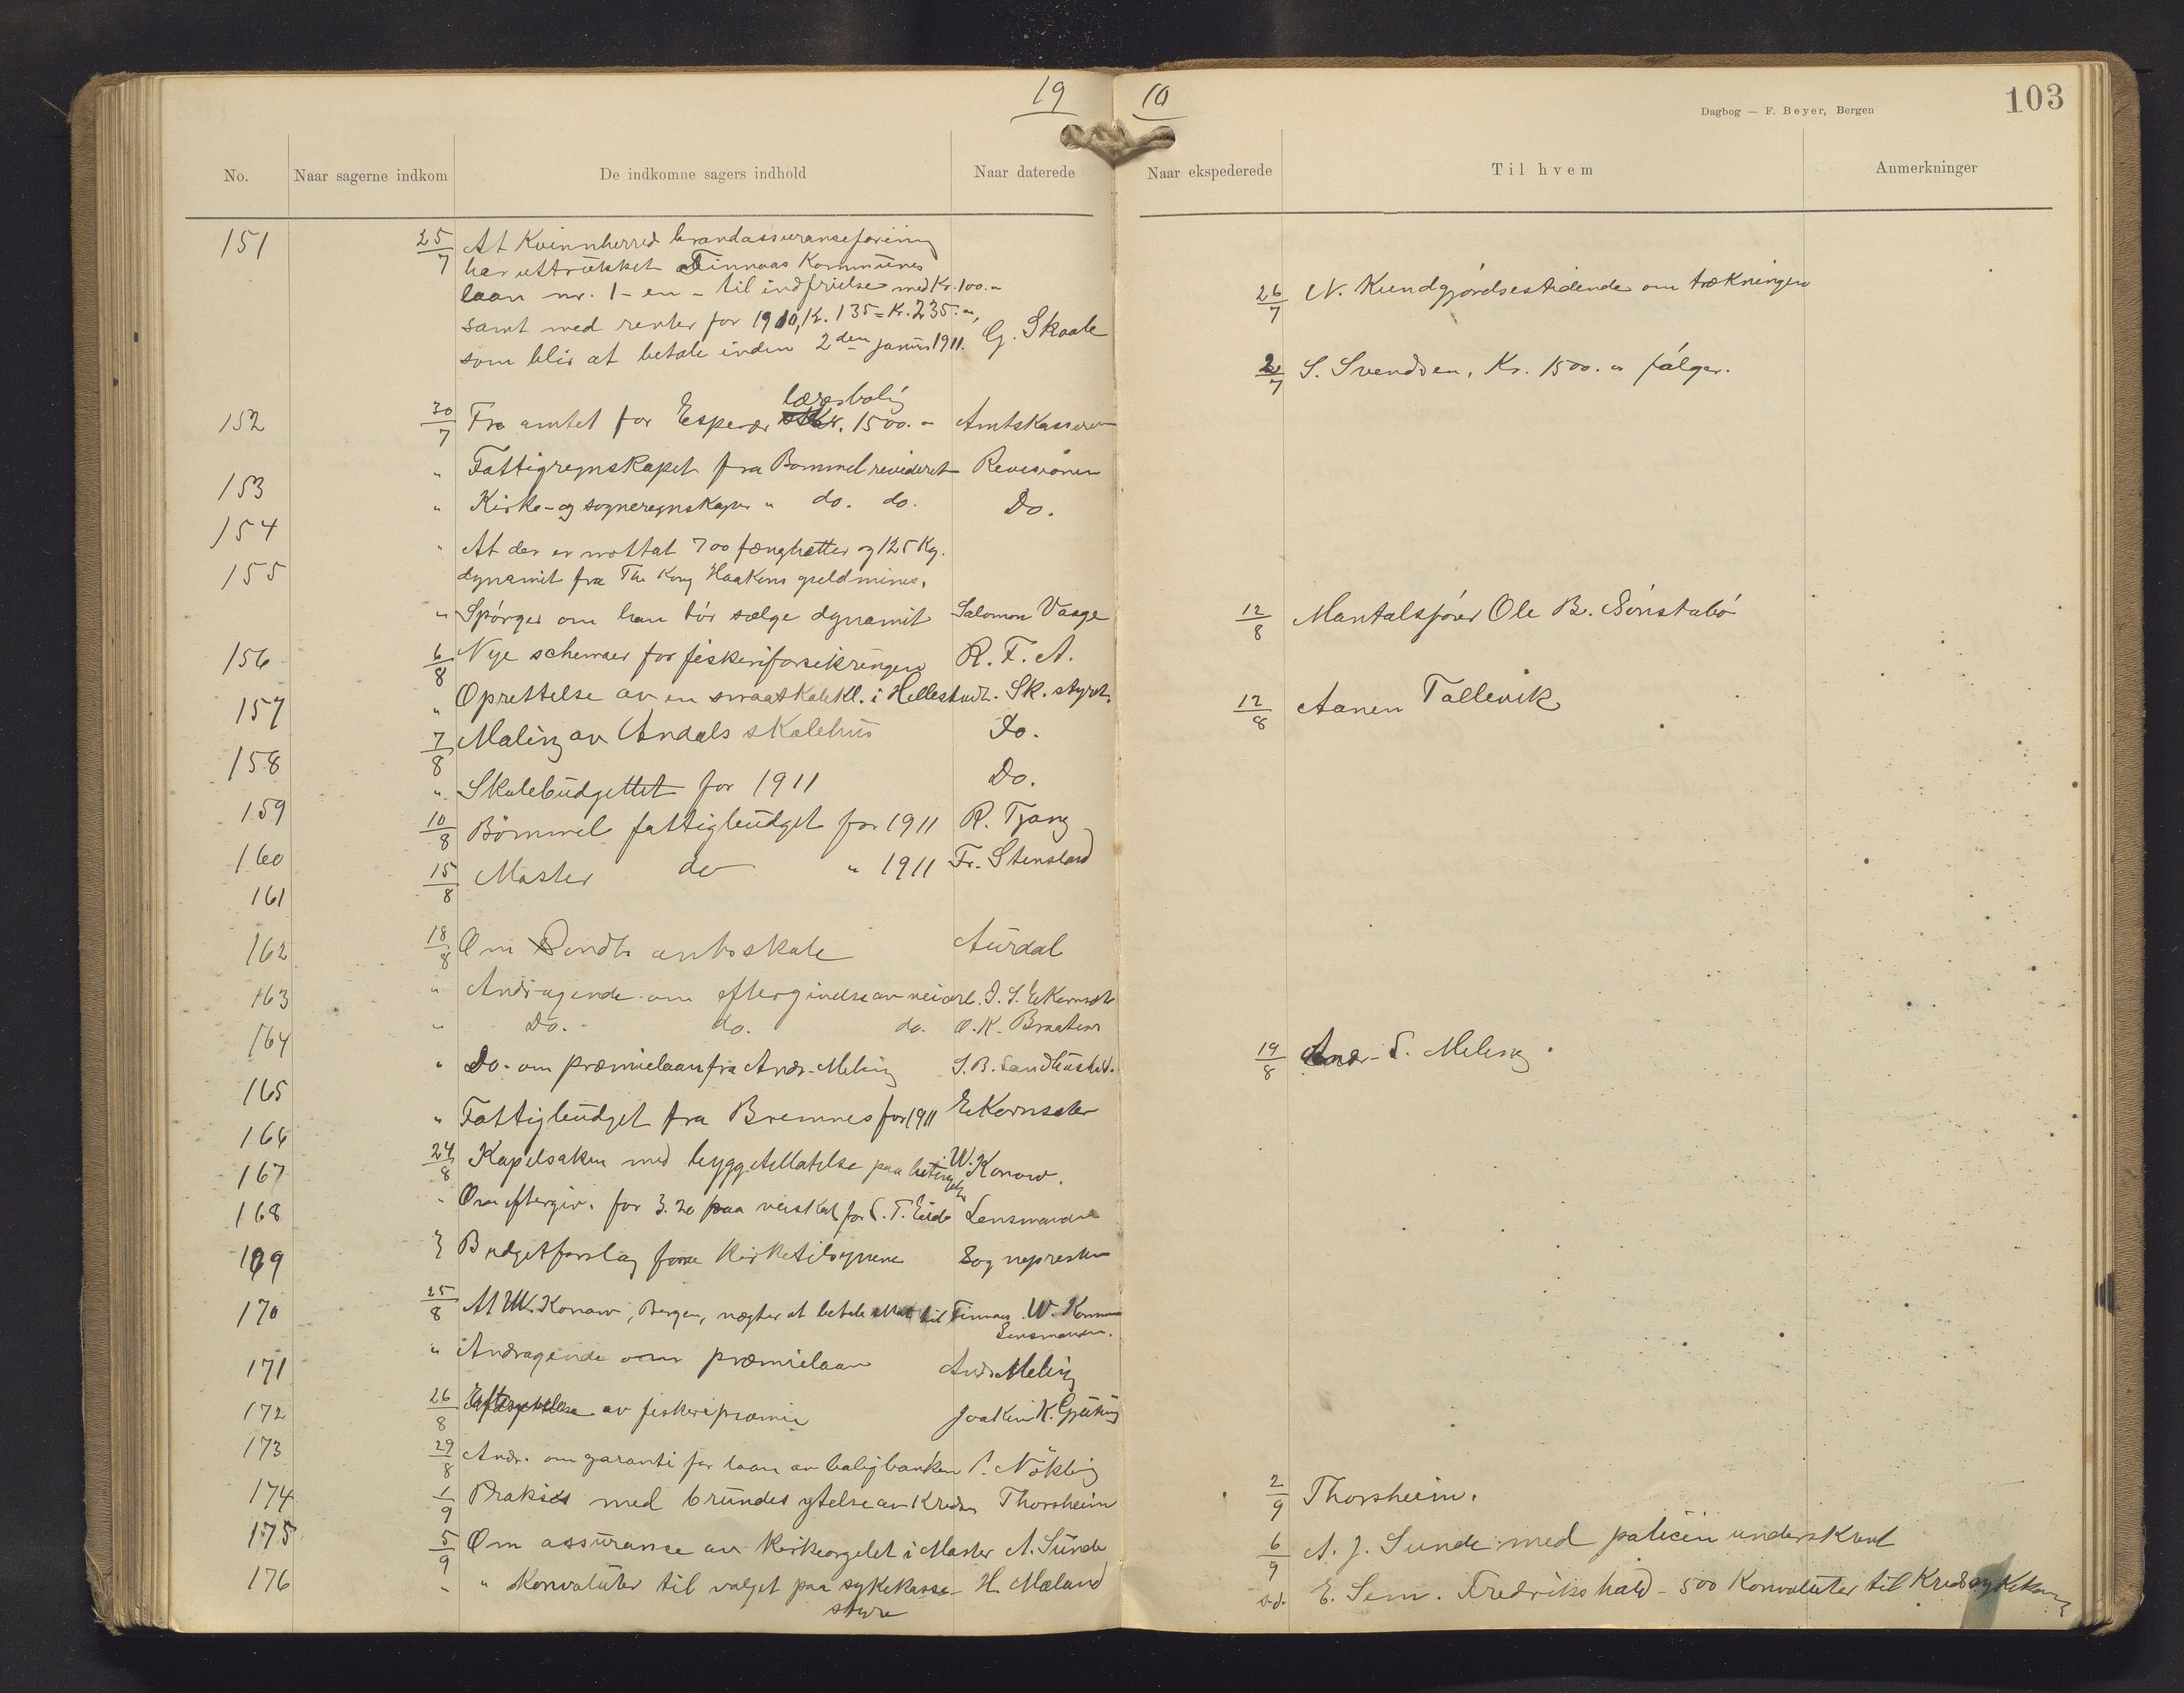 19 10
Dagbog — F. Beyer, Bergen
103
No. Naar sagerne indkom De indkomne sagers indhold Naar daterede Naar ekspederede Til hvem Anmerkninger
151 25/7 At Kvinnherred brandassuranseforening
har uttrükket Finnaas Kommünes
laan nr. 1 - en - til indfrielse med Kr. 100.-
samt med renter for 1910, Kr. 135 = Kr. 235.-,
som blir at betale inden 2den januar 1911. G. Skaale
26/7 N. Kundgjørdsestidende om trækningen
2/7 S. Svendsen, Kr. 1500.- følger.
152 30/7 Fra amtet for Espevær lærerbolig Kr. 1500.- Amtskasseren
153 " Fattigregnskapet fra Bømmel revideret Revisionen
154 " Kirke- og sogneregnskaper " do. do. Do.
155 " At der er mottat 700 fænghætter og 125 Kg.
dynamit fra The Kong Haakons guldmines.
" Spørger om han tør sælge dynamit Salomon Vaage
12/8 Mantalsfører Ole B. Sønstabø
156 6/8 Nye schemaer for fiskeriforsikringen R. F. A.
157 " Oprettelse av en smaaskolekl. i Hellestvedt. Sk. styret.
12/8 Aanen Tollevik
158 7/8 Maling av Andals skolehus Do.
159 " Skolebüdgettet for 1911 Do.
160 10/8 Bömmel fattigbüdget for 1911 R. Tjong
161 15/8 Moster do " 1911 Fr. Stensland
162 18/8 Om amtsskole Aürdal
163 " Andragende om eftergivelse av veiarb. I. S. Ekornsæter
164 " Do. do. do. O. K. Braaten
" Do. om præmielaan fra Andr. Meling S. B. Sandhüsted.
19/8 Andr. S. Meling.
165
166 " Fattigbüdget fra Bremnes for 1911 Ekornsæter
167 24/8 Kapelsaken med byggetillatelse paa betingelse W. Konow.
168 " Om eftergiv. for 3.20 paa veiskat for S. T. Eide Lensmanden
169 Budgetforslag fra Kirketilsynene Sognepresten
170 25/8 At W. Konow, Bergen, nægter at betale skat til Finnaas. W. Konow
Lensmanden.
171 " Andragende om præmielaan Andr. Meling
172 26/8 Eftergivelse av fiskeripræmie Joakim K.
173 29/8 Andr. om garanti for laan av boligbanken Nökling
174 1/9 Praksis med bründes ytelse av Kredsen Thorsheim
2/9 Thorsheim.
175 5/9 Om assüranse av Kirkeorgelet i Moster A. Sünde
6/9 A. J. Sunde med policen underskrevet
176 " " Konvolüter til valget paa sykekasse- H. Mæland
styre
s.d. E. Sem. Fredrikshald - 500 Konvolüter til Kredssykekassen